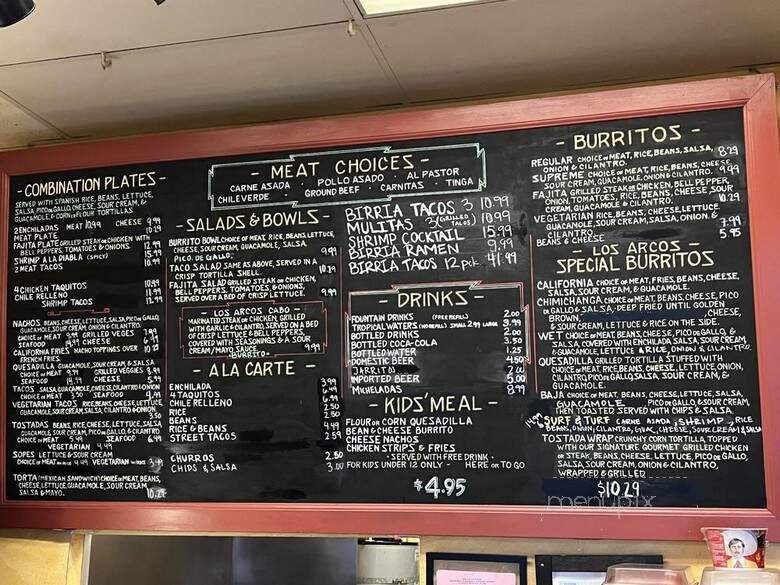 - COMBINATION PLATES -
SERVED WITH SPANISH RICE, BEANS, LETTUCE,
SALSA, PICO de GALLO, CHEESE, SOUR CREAM, &
GUACAMOLE, & CORN or FLOUR TORTILLAS.
2 ENCHILADAS MEAT 10.99 CHEESE 9.99
MEAT PLATE 10.29
FAJITA PLATE GRILLED STEAK or CHICKEN WITH
BELL PEPPERS, TOMATOES & ONIONS. 12.99
SHRIMP A LA DIABLA (SPICY) 15.99
2 MEAT TACOS 10.99
4 CHICKEN TAQUITOS 10.99
CHILE RELLENO 10.99
SHRIMP TACOS 12.99
NACHOS BEANS, CHEESE, LETTUCE, SALSA, PICO de GALLO,
GUACAMOLE, SOUR CREAM, ONION & CILANTRO.
CHOICE of MEAT 9.99 GRILLED VEGES 7.99
SEAFOOD 14.99 CHEESE 6.99
CALIFORNIA FRIES NACHO TOPPINGS OVER 10.29
FRENCH FRIES.
QUESADILLA GUACAMOLE, SOUR CREAM & SALSA.
CHOICE of MEAT 9.99 GRILLED VEGGIES 8.99
SEAFOOD 14.99 CHEESE 5.99
TACOS SALSA, GUACAMOLE, CHEESE, CILANTRO & ONION
CHOICE of MEAT 3.50 SEAFOOD
VEGETARIAN TACOS RICE, BEANS, CHEESE, LETTUCE,
GUACAMOLE, SOUR CREAM, SALSA, CILANTRO & ONION.
3.50
TOSTADAS BEANS, RICE, CHEESE, LETTUCE, SALSA,
GUACAMOLE, SOUR CREAM, ONION & CILANTRO.
CHOICE of MEAT 5.49 SEAFOOD 6.99
VEGETARIAN 4.49
SOPES LETTUCE & SOUR CREAM
CHOICE of MEAT 4.49 VEGETARIAN 3.49
TORTA (MEXICAN SANDWICH) CHOICE of MEAT, BEANS,
CHEESE, LETTUCE, GUACAMOLE, SOUR CREAM,
SALSA & MAYO. 10.29
- MEAT CHOICES -
CARNE ASADA . POLLO ASADO . AL PASTOR
CHILE VERDE . GROUND BEEF . CARNITAS . TINGA
- SALADS & BOWLS -
BURRITO BOWL CHOICE of MEAT, RICE, BEANS, LETTUCE,
CHEESE, SOUR CREAM, GUACAMOLE, SALSA,
PICO. DE GALLO. 9.99
TACO SALAD SAME AS ABOVE, SERVED IN A
CRISP TORTILLA SHELL. 10.29
FAJITA SALAD GRILLED STEAK or CHICKEN,
BELL PEPPERS, TOMATOES, & ONIONS,
SERVED OVER A BED OF CRISP LETTUCE. 9.99
- LOS ARCOS CABO -
MARINATED STEAK or CHICKEN, GRILLED
WITH GARLIC & CILANTRO, SERVED ON A BED
OF CRISP LETTUCE & BELL PEPPERS,
COVERED WITH SEASONINGS & A SOUR
CREAM / MAYO SAUCE. 9.99
BURRITO.
- A LA CARTE -
ENCHILADA 3.99
4 TAQUITOS 6.49
CHILE RELLENO 6.99
RICE 2.50
BEANS 2.50
RICE & BEANS 4.49
STREET TACOS 2.59
CHURROS 2.50
CHIPS & SALSA 3.00
BIRRIA TACOS 3 10.99
MULITAS 2 (GRILLED TACOS) 10.99
SHRIMP COCKTAIL 15.99
BIRRIA RAMEN 9.99
BIRRIA TACOS 12 pck. 41.99
- DRINKS -
FOUNTAIN DRINKS (FREE REFILL) 2.00
TROPICAL WATERS (NO REFILL) SMALL 2.99 LARGE 3.99
BOTTLED DRINKS 2.00
BOTTLED COCA-COLA 3.50
BOTTLED WATER 1.25
DOMESTIC BEER 4.50
JARRITOS 2.00
IMPORTED BEER 5.00
MICHELADAS 8.99
- KIDS' MEAL -
FLOUR or CORN QUESADILLA
BEAN & CHEESE BURRITO
CHEESE NACHOS
CHICKEN STRIPS & FRIES
- SERVED WITH FREE DRINK -
FOR KIDS UNDER 12 ONLY - HERE OR TO GO
$4.95
- BURRITOS -
REGULAR CHOICE of MEAT, RICE, BEANS, SALSA,
ONION & CILANTRO. 8.29
SUPREME CHOICE of MEAT, RICE, BEANS, CHEESE,
SOUR CREAM, GUACAMOLE, ONION & CILANTRO. 9.99
FAJITA GRILLED STEAK or CHICKEN, BELL PEPPERS,
ONION, TOMATOES, RICE, BEANS, CHEESE, SOUR
CREAM, GUACAMOLE & CILANTRO. 10.29
VEGETARIAN RICE, BEANS, CHEESE, LETTUCE,
GUACAMOLE, SOUR CREAM, SALSA, ONION, &
CILANTRO. 7.99
BEANS & CHEESE 5.95
- LOS ARCOS -
SPECIAL BURRITOS
CALIFORNIA CHOICE of MEAT, FRIES, BEANS, CHEESE,
SALSA, SOUR CREAM, & GUACAMOLE.
CHIMICHANGA CHOICE of MEAT, BEANS, CHEESE, PICO
DE GALLO & SALSA, DEEP FRIED UNTIL GOLDEN
BROWN, , CHEESE,
& SOUR CREAM, LETTUCE & RICE ON THE SIDE.
WET CHOICE of MEAT, BEANS, CHEESE, PICO de GALLO, &
SALSA, COVERED WITH ENCHILADA SALSA, SOUR CREAM
& GUACAMOLE, LETTUCE & RICE, ONION & CILANTRO
QUESADILLA GRILLED TORTILLA STUFFED WITH
CHOICE of MEAT, RICE, BEANS, CHEESE, LETTUCE, ONION,
CILANTRO, PICO de GALLO, SALSA, SOUR CREAM, &
GUACAMOLE.
BAJA CHOICE of MEAT, BEANS, CHEESE, LETTUCE, SALSA,
GUACAMOLE, PICO de GALLO & SOUR CREAM,
THEN TOASTED SERVED WITH CHIPS & SALSA.
14.99 SURF & TURF CARNE ASADA & SHRIMP, RICE
BEANS, ONION, CILANTRO, GUAC, CHEESE, SOUR CREAM & SALSA
TOSTADA WRAP CRUNCHY CORN TORTILLA, TOPPED
WITH OUR SIGNATURE GOURMET GRILLED CHICKEN
or STEAK, BEANS, CHEESE, LETTUCE, PICO de GALLO,
SALSA, SOUR CREAM, ONION & CILANTRO,
WRAPPED & GRILLED.
$10.29
menupix